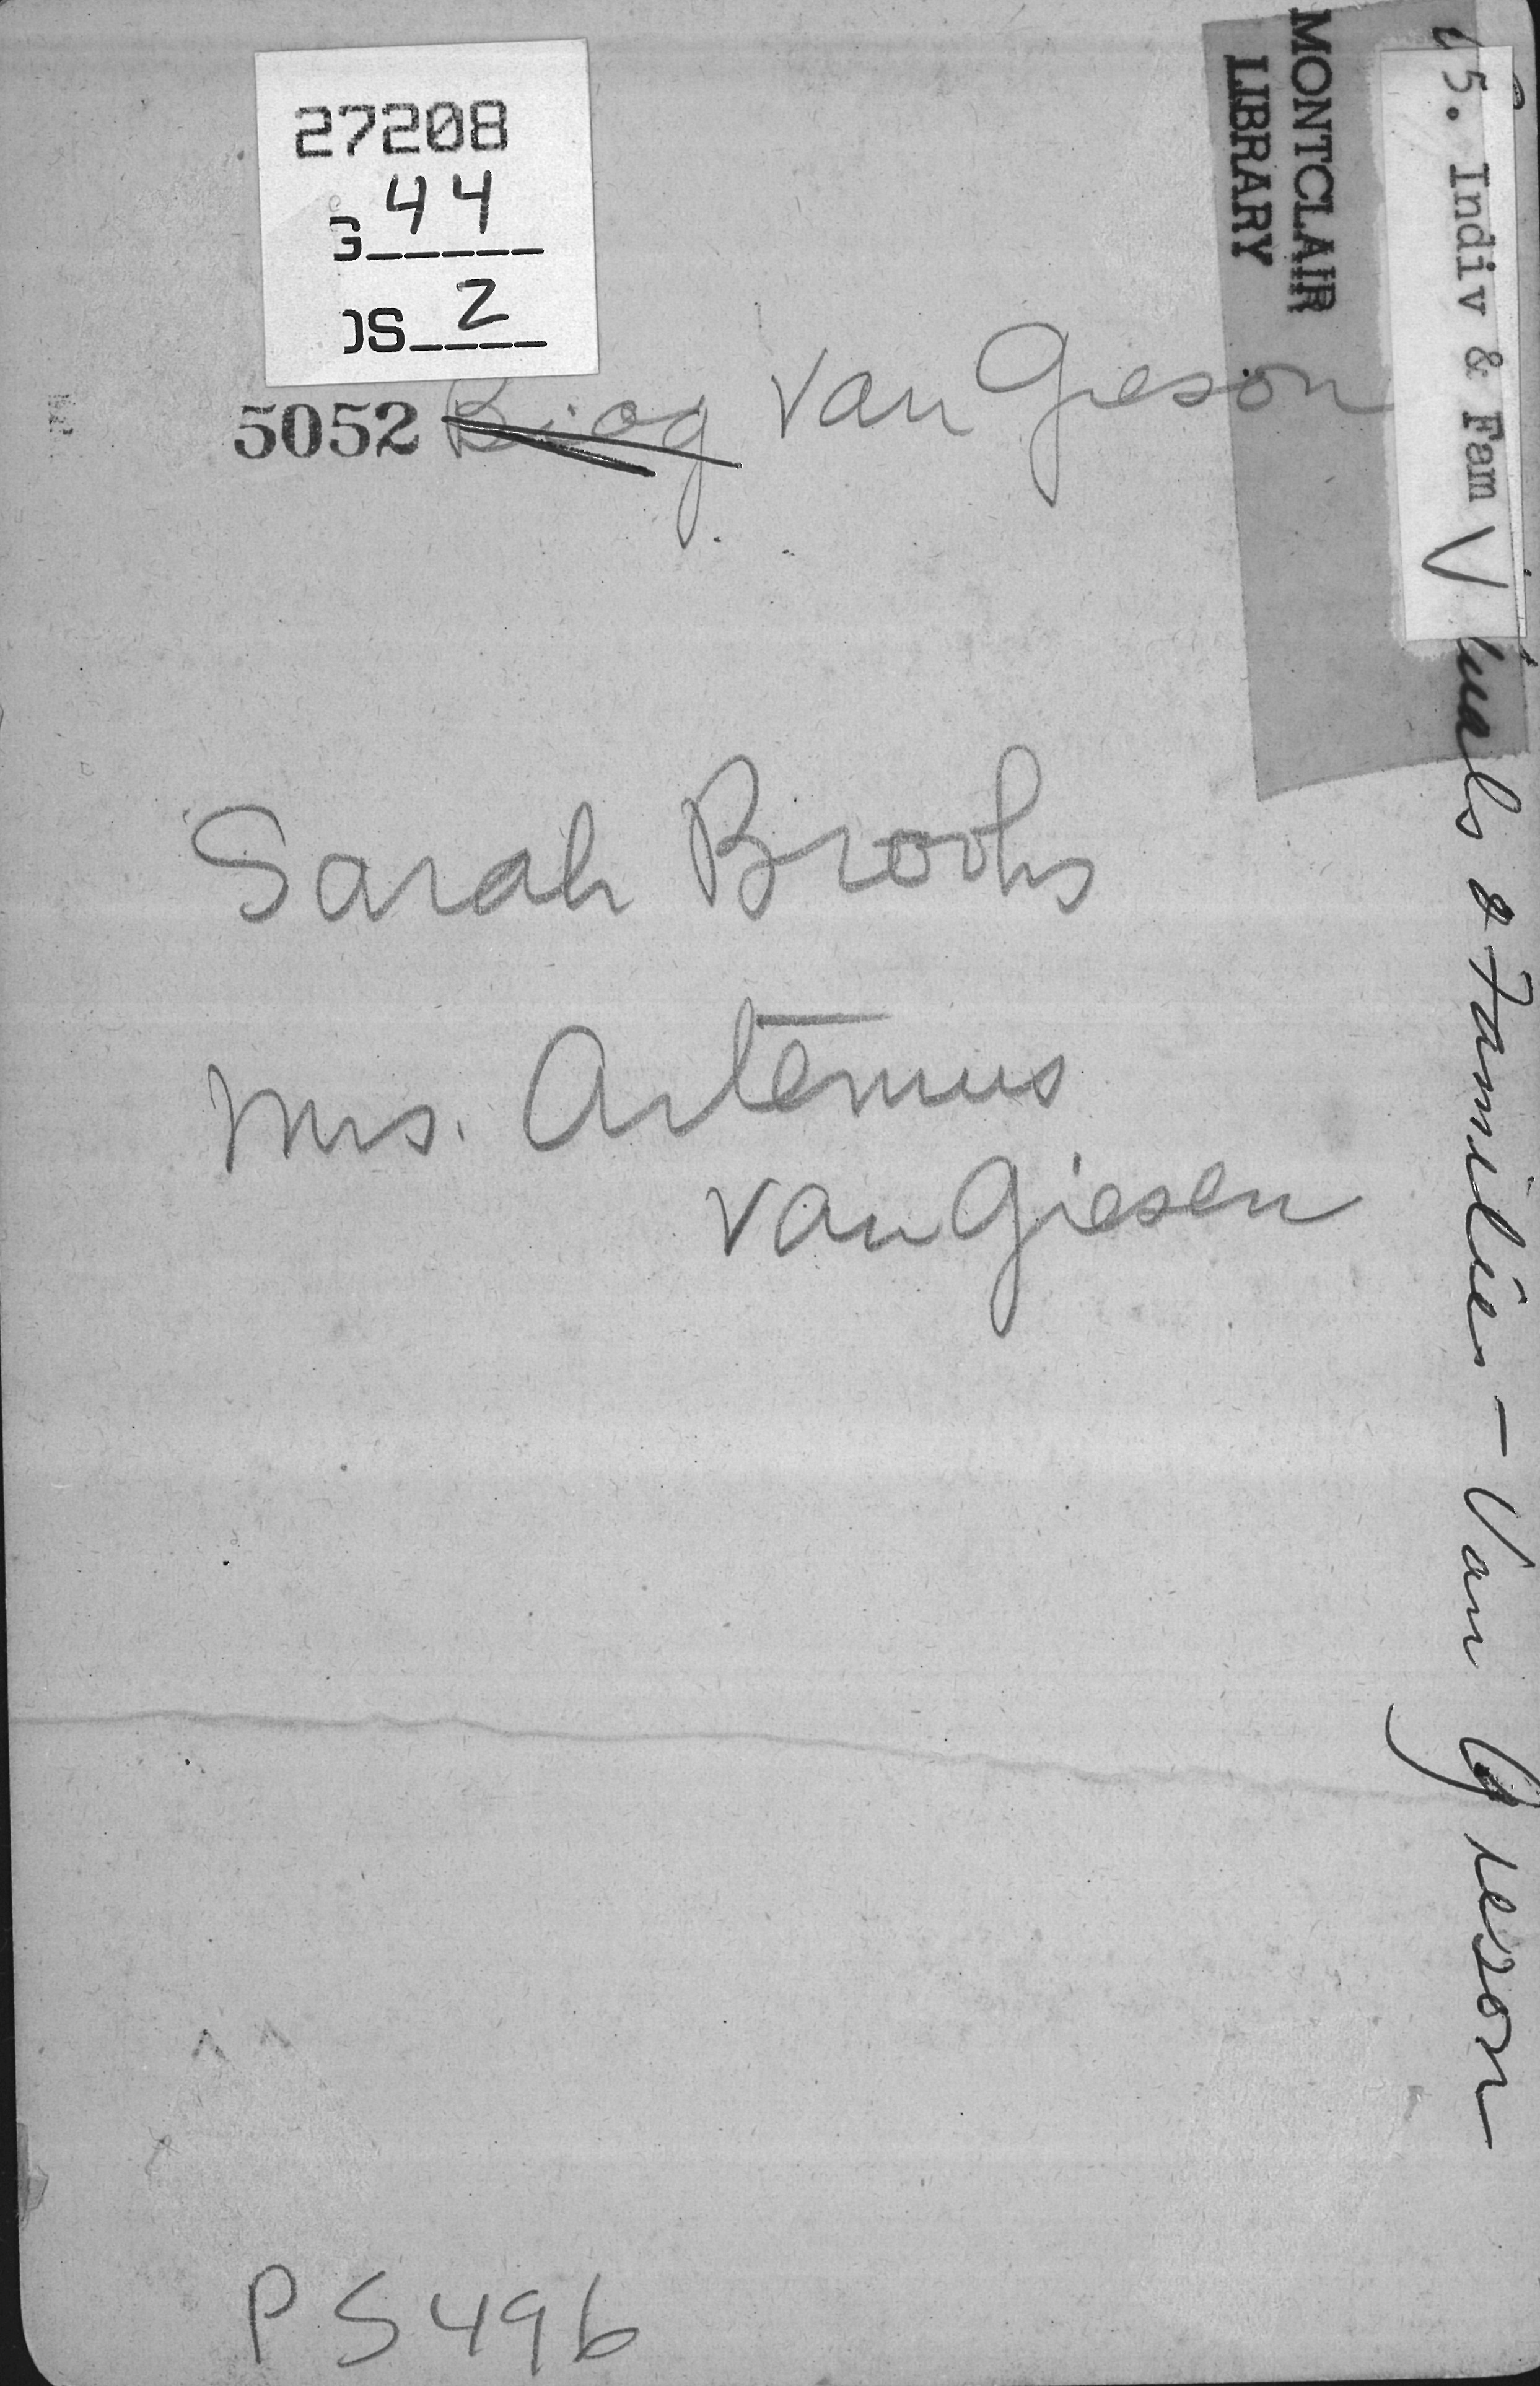 27208
G 44
OS 2
5052 Biog Van Gieson
MONTCLAIR
LIBRARY
5. Indiv & Fam V
uals & Families - Van Gieson
Sarah Brooks
Mrs. Artemus
Van Giesen
PS496